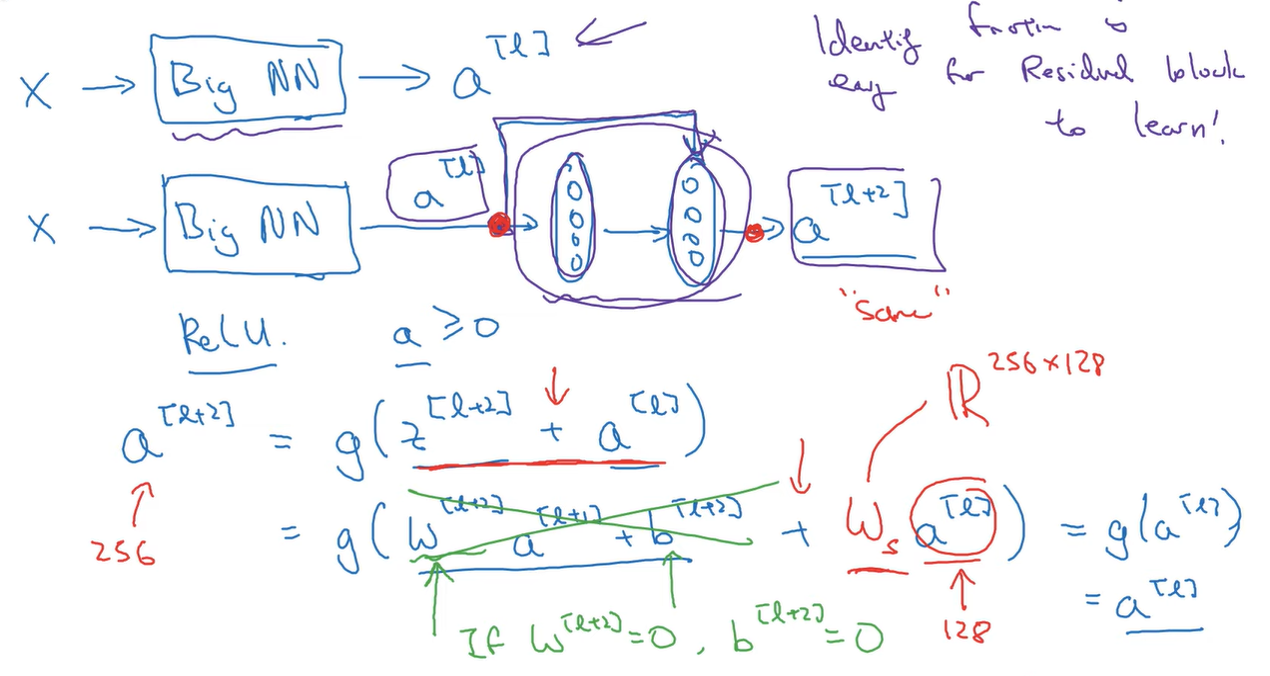 X → Big NN → a^[l]
Identity function is
easy for Residual block
to learn!
X → Big NN → a^[l] → → a^[l+2]
"Same"
ReLU. a ≥ 0
R^256×128
a^[l+2] = g(z^[l+2] + a^[l])
256
= g(W^[l+2] a^[l+1] + b^[l+2] + W_s a^[l]) = g(a^[l])
= a^[l]
128
If W^[l+2] = 0, b^[l+2] = 0